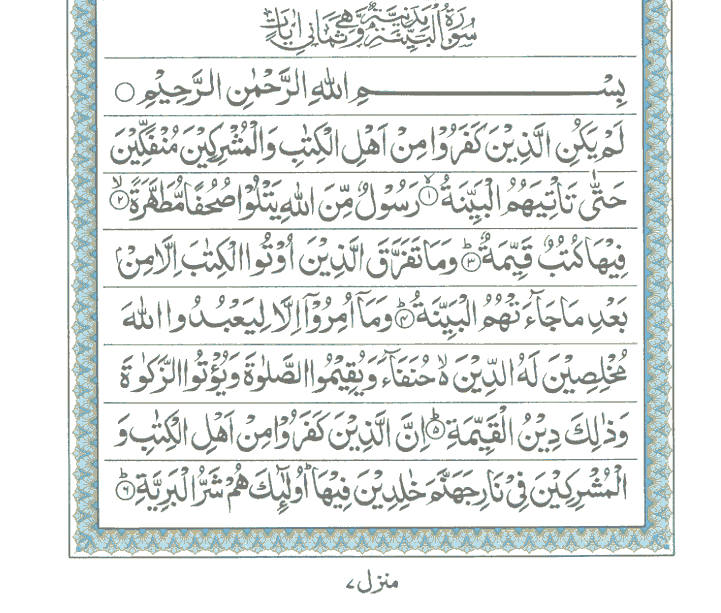 سُوْرَةُ الْبَيِّنَةِ مَدَنِيَّةٌ وَّهِيَ ثَمَانِيْ اٰيَاتٍ
بِسْمِ اللهِ الرَّحْمٰنِ الرَّحِيْمِ ○
لَمْ يَكُنِ الَّذِيْنَ كَفَرُوْا مِنْ اَهْلِ الْكِتٰبِ وَالْمُشْرِكِيْنَ مُنْفَكِّيْنَ
حَتّٰى تَاْتِيَهُمُ الْبَيِّنَةُ ۙ﴿۱﴾ رَسُوْلٌ مِّنَ اللهِ يَتْلُوْا صُحُفًا مُّطَهَّرَةً ۙ﴿۲﴾
فِيْهَا كُتُبٌ قَيِّمَةٌ ؕ﴿۳﴾ وَمَا تَفَرَّقَ الَّذِيْنَ اُوْتُوا الْكِتٰبَ اِلَّا مِنْۢ
بَعْدِ مَا جَآءَتْهُمُ الْبَيِّنَةُ ؕ﴿۴﴾ وَمَاۤ اُمِرُوْۤا اِلَّا لِيَعْبُدُوا اللهَ
مُخْلِصِيْنَ لَهُ الدِّيْنَ ۙ۬ حُنَفَآءَ وَيُقِيْمُوا الصَّلٰوةَ وَيُؤْتُوا الزَّكٰوةَ
وَذٰلِكَ دِيْنُ الْقَيِّمَةِ ؕ﴿۵﴾ اِنَّ الَّذِيْنَ كَفَرُوْا مِنْ اَهْلِ الْكِتٰبِ وَ
الْمُشْرِكِيْنَ فِيْ نَارِ جَهَنَّمَ خٰلِدِيْنَ فِيْهَا ؕ اُولٰٓئِكَ هُمْ شَرُّ الْبَرِيَّةِ ؕ﴿۶﴾
منزل ۷